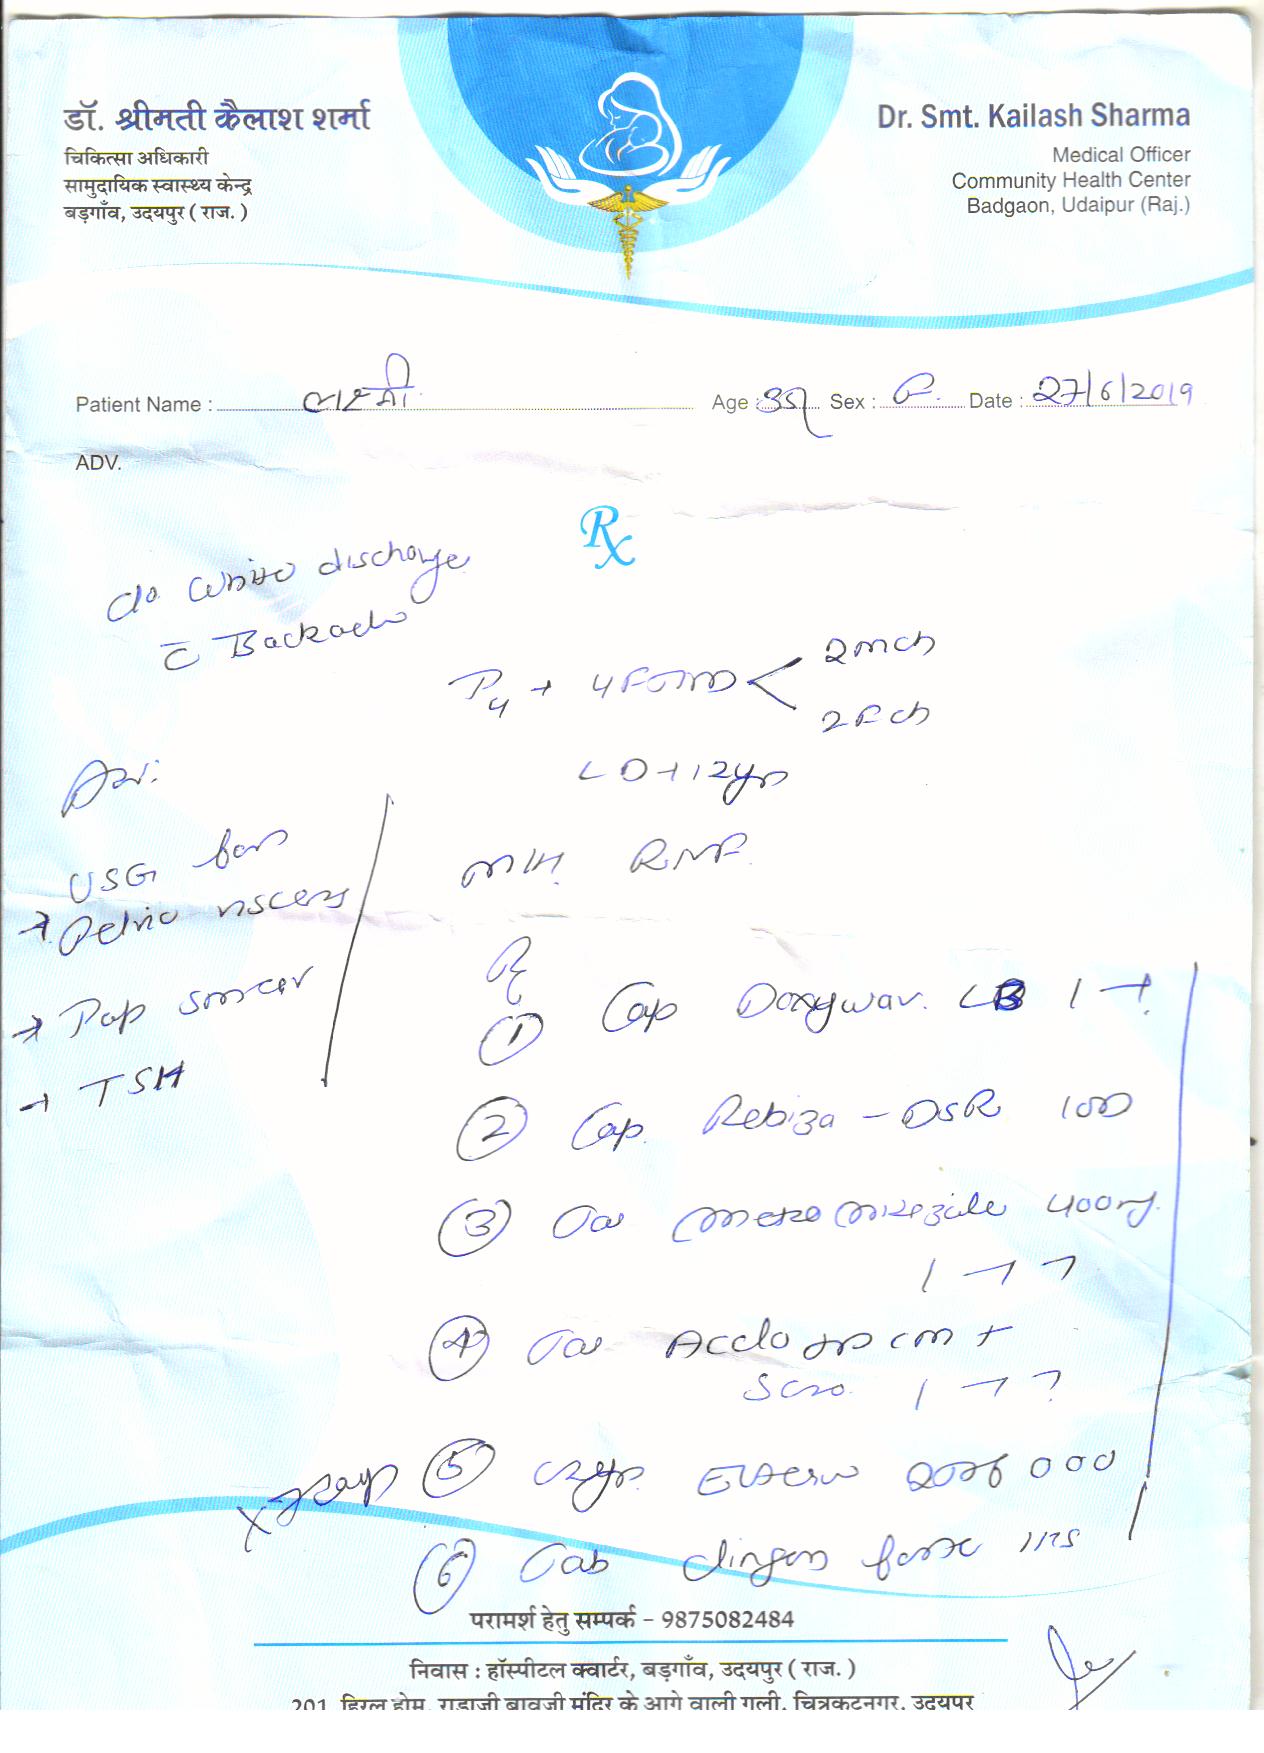 डॉ. श्रीमती कैलाश शर्मा
चिकित्सा अधिकारी
सामुदायिक स्वास्थ्य केन्द्र
बड़गाँव, उदयपुर ( राज. )
Dr. Smt. Kailash Sharma
Medical Officer
Community Health Center
Badgaon, Udaipur (Raj.)
Patient Name : लक्ष्मी Age : Sex : F. Date : 27/6/2019
ADV.
Rx
c/o white discharge
c̄ Backache
P4 + 4 FTND < 2 mch
2 Fch
LD → 12 yrs
M/H. RNF.
Adv:
USG for
→ Pelvic viscera
→ Pap smear
→ TSH
Rx
① Cap Doxywar. LB 1 →
② Cap. Rebiza - DSR 1 OD
③ Tab Metronidazole 400mg.
1 → 7
④ Tab
1 → 7
⑤ Syp.
⑥ Tab clingen forte
परामर्श हेतु सम्पर्क – 9875082484
निवास : हॉस्पीटल क्वार्टर, बड़गाँव, उदयपुर ( राज. )
201, हिरल होम, राडाजी बावजी मंदिर के आगे वाली गली, चित्रकूटनगर, उदयपुर